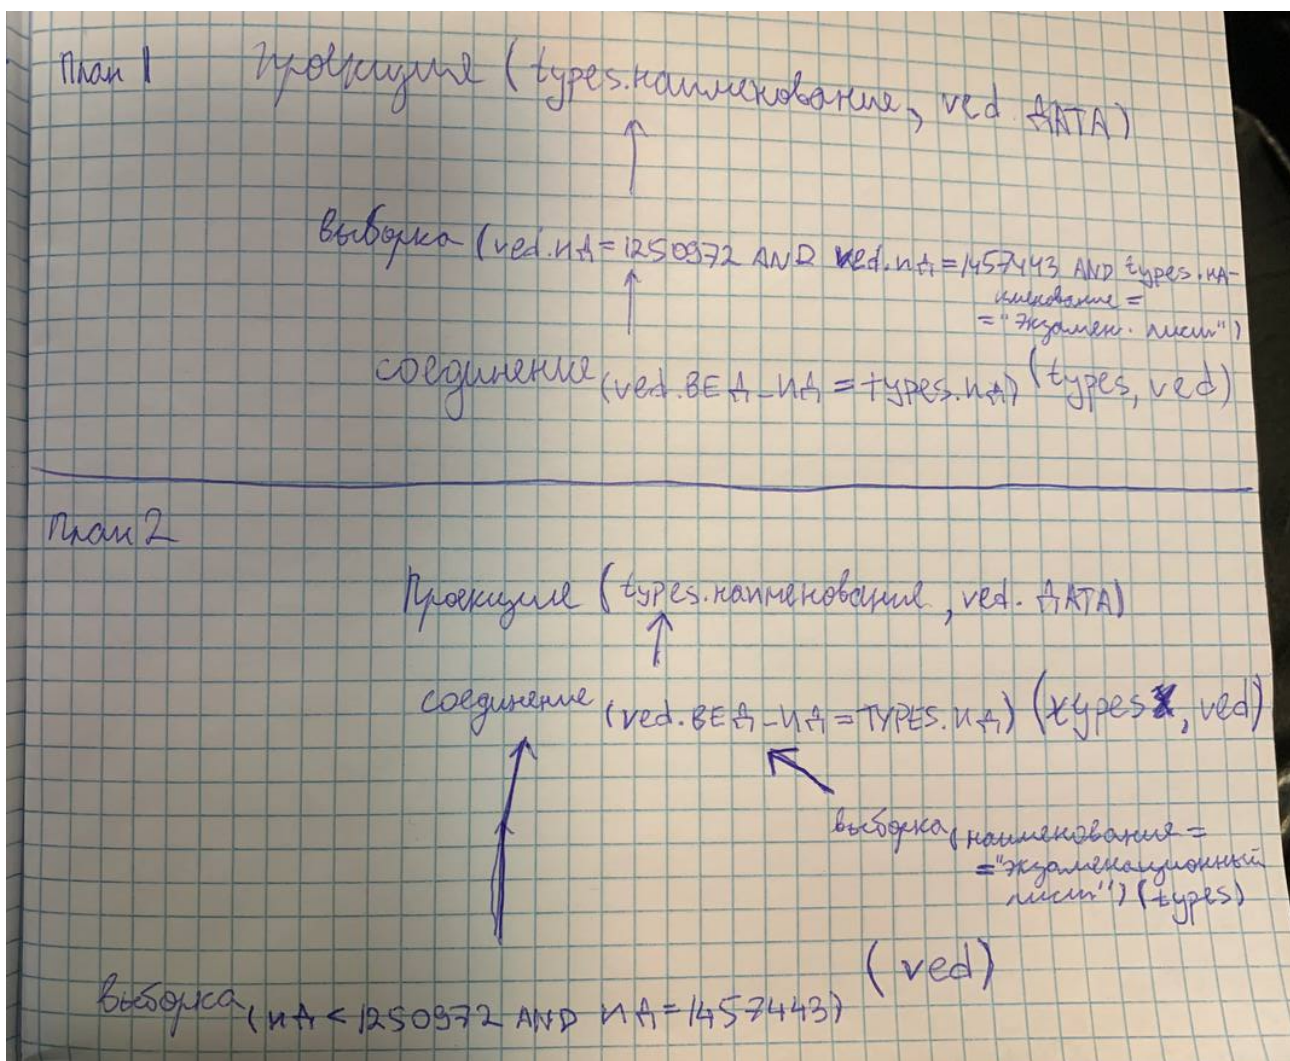 План 1 Проекция (types.наименование, ved.ДАТА)
выборка (ved.ИД=1250972 AND ved.ИД=1457443 AND types.на-
именование=
="Экзамен. лист")
соединение (ved.ВЕД_ИД=types.ИД) (types, ved)
План 2
Проекция (types.наименование, ved.ДАТА)
соединение (ved.ВЕД_ИД=TYPES.ИД) (types, ved)
выборка (наименование=
="экзаменационный
лист") (types)
(ved)
выборка (ИД<1250972 AND ИД=1457443)